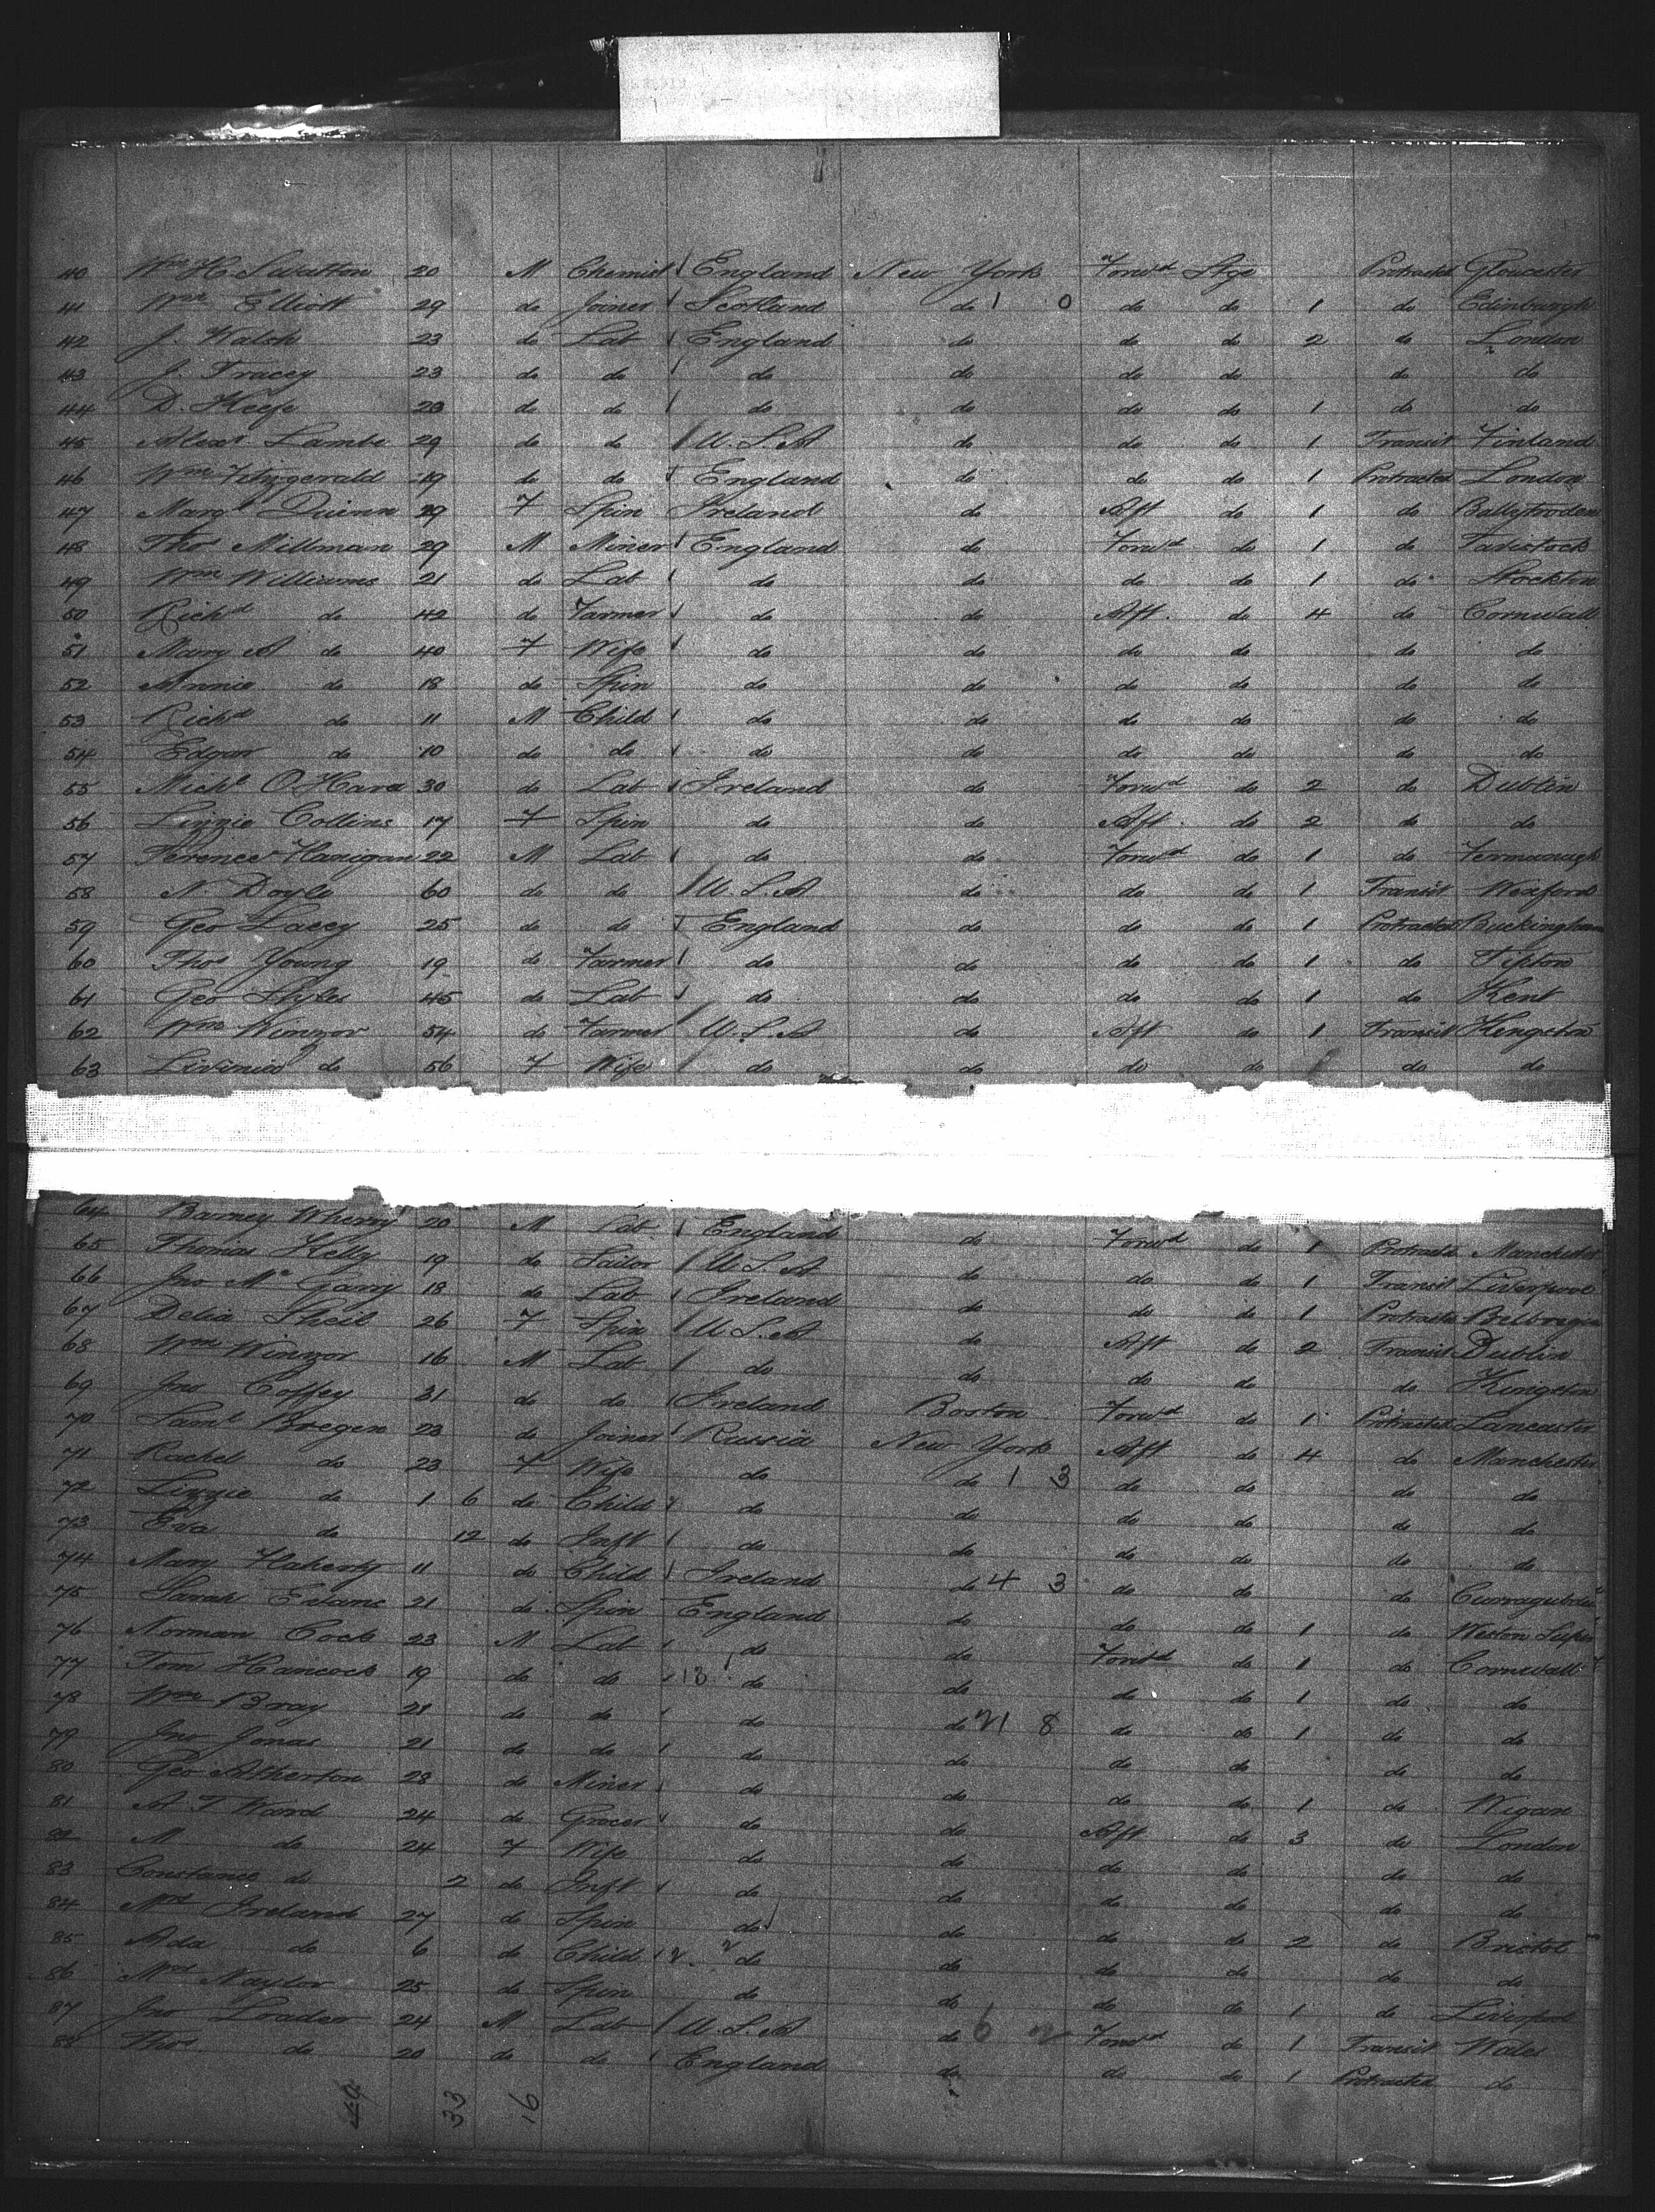 40 Wm H. Swatton 20 M Chemist England New York Forwd Stge Protracted Gloucester
41 Wm Elliott 29 do Joiner Scotland do 1 0 do do 1 do Edinburgh
42 J. Walsh 23 do Lab England do do do 2 do London
43 J. Tracey 23 do do do do do do do do
44 D. Keefe 23 do do do do do do 1 do do
45 Alexr Lambe 29 do do U.S.A do do do 1 Transit Finland
46 Wm Fitzgerald 19 do do England do do do 1 Protracted London
47 Margt Quinn 29 F Spin Ireland do Aft do 1 do
48 Thos Millman 29 M Miner England do Forwd do 1 do Tavistock
49 Wm Williams 21 do Lab do do do do 1 do Stockton
50 Richd do 42 do Farmer do do Aft. do 4 do Cornwall
51 Mary A do 40 F Wife do do do do do do
52 Annie do 18 do Spin do do do do do do
53 Richd do 11 M Child do do do do do do
54 Edgar do 10 do do do do do do do do
55 Michl O'Hara 30 do Lab Ireland do Forwd do 2 do Dublin
56 Lizzie Collins 17 F Spin do do Aft. do 2 do do
57 Terence Flanigan 22 M Lab do do Forwd do 1 do Fermanagh
58 N. Doyle 60 do do U.S.A do do do 1 Transit Wexford
59 Geo Lacey 25 do do England do do do 1 Protracted Buckingham
60 Thos Young 19 do Farmer do do do do 1 do Tipton
61 Geo Styles 45 do Lab do do do do 1 do Kent
62 Wm Winzor 54 do Farmer U.S.A do Aft do 1 Transit Kingston
63 Livinia do 56 F Wife do do do do do do
64 Barney Wherry 20 M Lab England do Forwd do 1 Protracted Manchester
65 Thomas Kelly 19 do Sailor U.S.A do do do 1 Transit Liverpool
66 Jno Mc Garry 18 do Lab Ireland do do do 1 Protracted
67 Delia Sheil 26 F Spin U.S.A do Aft do 2 Transit Dublin
68 Wm Winzor 16 M Lab do do do do do Kingston
69 Jno Coffey 31 do do Ireland Boston Forwd do 1 Protracted Lancaster
70 Saml Bregen 23 do Joiner Russia New York Aft do 4 do Manchester
71 Rachel do 23 F Wife do do 1 3 do do do do
72 Lizzie do 1 6 do Child do do do do do do
73 Eva do 12 do Inft do do do do do do
74 Mary Flaherty 11 do Child Ireland do 4 3 do do do
75 Sarah Evans 21 do Spin England do do do 1 do Weston Super
76 Norman Cock 23 M Lab do do Forwd do 1 do Cornwall
77 Tom Hancock 19 do do 13 do do do do 1 do do
78 Wm Bray 21 do do do do 21 8 do do 1 do do
79 Jno Jonas 21 do do do do do do do do
80 Geo Atherton 28 do Miner do do do do 1 do Wigan
81 A T Ward 24 do Grocer do do Aft do 3 do London
82 M do 24 F Wife do do do do do do
83 Constance do 2 do Inft do do do do do do
84 Mrs Ireland 27 do Spin do do do do 2 do Bristol
85 Ada do 6 do Child 2 2 do do do do do do
86 Mrs Naylor 25 do Spin do do do do 1 do Liverpool
87 Jno Loader 24 M Lab U.S.A do 6 2 Forwd do 1 Transit Wales
88 Thos do 20 do do England do do do 1 Protracted do
49 33 16